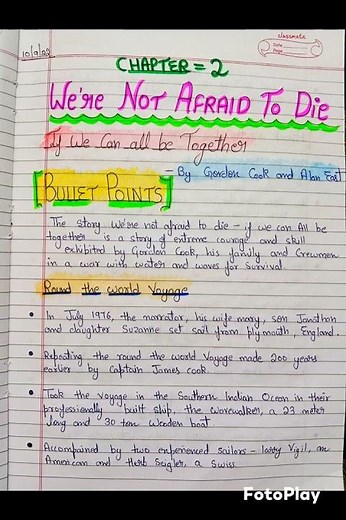 classmate
Date
Page
10/9/22
CHAPTER = 2
WE'RE NOT AFRAID TO DIE
If We Can all be Together
- By Gordon Cook and Alan East
[BULLET POINTS]
The story We're not afraid to die - if we can All be
together is a story of extreme courage and skill
exhibited by Gordon Cook, his family and Crewmen
in a war with water and waves for Survival.
Round the world Voyage
• In July 1976, the narrator, his wife mary, son Jonathan
and daughter Suzanne set sail from plymouth, England.
• Repeating the round the world Voyage made 200 years
earlier by Captain James cook.
• Took the voyage in the Southern Indian Ocean in their
professionally built ship, the wavewalker, a 23 meter
long and 30 ton Wooden boat
• Accompained by two experienced sailors - larry Vigil, an
American and Herb Seigler, a Swiss.
FotoPlay